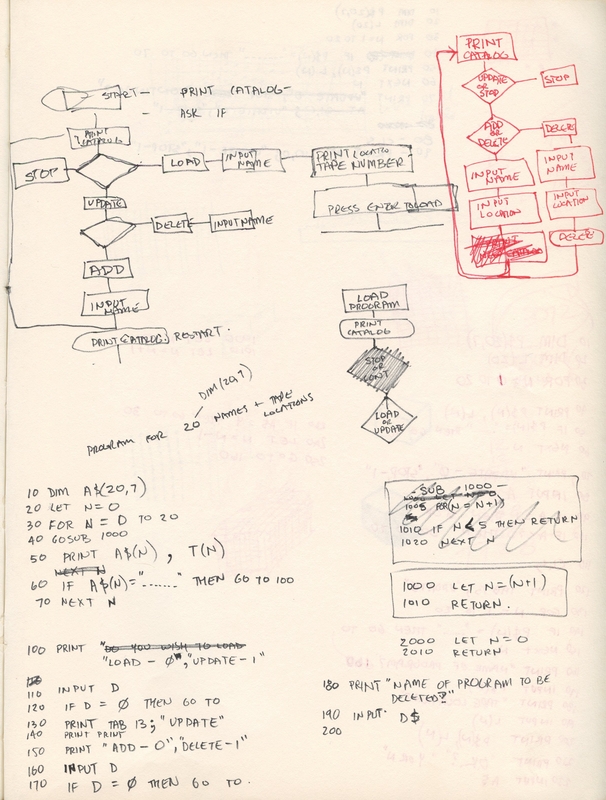 START — PRINT CATALOG —
— ASK IF
PRINT CATALOG
STOP
LOAD
INPUT NAME
PRINT LOCATN
TAPE NUMBER
PRESS ENTER TO LOAD
UPDATE
DELETE
INPUT NAME
ADD
INPUT NAME
PRINT CATALOG. RESTART.
PRINT CATALOG
UPDATE OR STOP
STOP
ADD OR DELETE
DELETE
INPUT NAME
INPUT NAME
INPUT LOCATION
INPUT LOCATION
DELETE
LOAD PROGRAM
PRINT CATALOG
STOP OR CONT
LOAD OR UPDATE
DIM(20,7)
PROGRAM FOR 20 NAMES + TAPE LOCATIONS
10 DIM A$(20,7)
20 LET N=0
30 FOR N = 0 TO 20
40 GOSUB 1000
50 PRINT A$(N), T(N)
NEXT N
60 IF A$(N)="......" THEN GO TO 100
70 NEXT N
100 PRINT "DO YOU WISH TO LOAD
"LOAD - 0", "UPDATE - 1"
110 INPUT D
120 IF D = 0 THEN GO TO
130 PRINT TAB 13; "UPDATE"
140 PRINT PRINT
150 PRINT "ADD - 0", "DELETE - 1"
160 INPUT D
170 IF D = 0 THEN GO TO.
— SUB 1000 —
1000 LET N=0
1005 FOR(N = N+1)
1010 IF N < 5 THEN RETURN
1020 NEXT N
1000 LET N=(N+1)
1010 RETURN.
2000 LET N=0
2010 RETURN
180 PRINT "NAME OF PROGRAM TO BE
DELETED?"
190 INPUT. D$
200